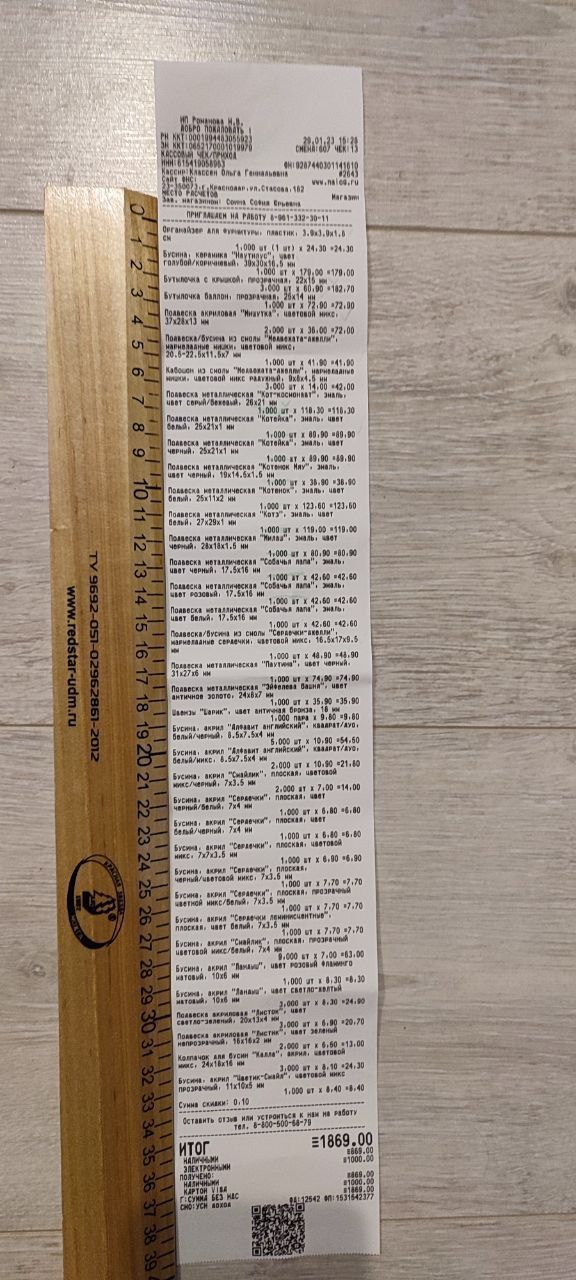 ИП Романова Н.В.
ДОБРО ПОЖАЛОВАТЬ !
РН ККТ:0001994483055923 20.01.23 15:28
ЗН ККТ:0652170001019979 СМЕНА:607 ЧЕК:13
КАССОВЫЙ ЧЕК/ПРИХОД
ИНН:615419058963 ФН:9287440301141610
Кассир:Классен Ольга Геннадьевна #2643
Сайт ФНС: www.nalog.ru
23-350073,г.Краснодар,ул.Стасова,182
МЕСТО РАСЧЕТОВ Магазин
Зав. магазином: София Юрьевна
ПРИГЛАШАЕМ НА РАБОТУ 8-961-332-30-11
Органайзер для фурнитуры, пластик, 3.9х3.9х1.8
см
1,000 шт (1 шт) х 24,30 =24,30
Бусина, керамика "Наутилус", цвет
голубой/коричневый, 39х30х16.5 мм
1,000 шт х 179,00 =179,00
Бутылочка с крышкой, прозрачная, 22х15 мм
3,000 шт х 60,90 =182,70
Бутылочка баллон, прозрачная, 25х14 мм
1,000 шт х 72,90 =72,90
Подвеска акриловая "Мишутка", цветовой микс,
37х28х13 мм
2,000 шт х 36,00 =72,00
Подвеска/бусина из смолы "Медвежата-акелли",
мармеладные мишки, цветовой микс,
20.5-22.5х11.5х7 мм
1,000 шт х 41,90 =41,90
Кабошон из смолы "Медвежата-акелли", мармеладные
мишки, цветовой микс радужный, 9х8х4.5 мм
3,000 шт х 14,00 =42,00
Подвеска металлическая "Кот-космонавт", эмаль,
цвет серый/бежевый, 26х21 мм
1,000 шт х 118,30 =118,30
Подвеска металлическая "Котейка", эмаль, цвет
белый, 25х21х1 мм
1,000 шт х 89,90 =89,90
Подвеска металлическая "Котейка", эмаль, цвет
черный, 25х21х1 мм
1,000 шт х 89,90 =89,90
Подвеска металлическая "Котенок Мяу", эмаль,
цвет черный, 19х14.5х1.5 мм
1,000 шт х 38,90 =38,90
Подвеска металлическая "Котенок", эмаль, цвет
белый, 25х11х2 мм
1,000 шт х 123,60 =123,60
Подвеска металлическая "Котэ", эмаль, цвет
белый, 27х29х1 мм
1,000 шт х 119,00 =119,00
Подвеска металлическая "Милаш", эмаль, цвет
черный, 28х18х1.5 мм
1,000 шт х 80,90 =80,90
Подвеска металлическая "Собачья лапа", эмаль,
цвет черный, 17.5х16 мм
1,000 шт х 42,60 =42,60
Подвеска металлическая "Собачья лапа", эмаль,
цвет розовый, 17.5х16 мм
1,000 шт х 42,60 =42,60
Подвеска металлическая "Собачья лапа", эмаль,
цвет белый, 17.5х16 мм
1,000 шт х 42,60 =42,60
Подвеска/бусина из смолы "Сердечки-акелли",
мармеладные сердечки, цветовой микс, 16.5х17х9.5
мм
1,000 шт х 48,90 =48,90
Подвеска металлическая "Паутина", цвет черный,
31х27х6 мм
1,000 шт х 74,90 =74,90
Подвеска металлическая "Эйфелева башня", цвет
античное золото, 24х8х7 мм
1,000 шт х 35,90 =35,90
Швензы "Шарик", цвет античная бронза, 18 мм
1,000 пара х 9,80 =9,80
Бусина, акрил "Алфавит английский", квадрат/дуо,
белый/черный, 8.5х7.5х4 мм
5,000 шт х 10,90 =54,50
Бусина, акрил "Алфавит английский", квадрат/дуо,
белый/микс, 8.5х7.5х4 мм
2,000 шт х 10,90 =21,80
Бусина, акрил "Смайлик", плоская, цветовой
микс/черный, 7х3.5 мм
2,000 шт х 7,00 =14,00
Бусина, акрил "Сердечки", плоская, цвет
черный/белый, 7х4 мм
1,000 шт х 6,80 =6,80
Бусина, акрил "Сердечки", плоская, цвет
белый/черный, 7х4 мм
1,000 шт х 6,80 =6,80
Бусина, акрил "Сердечки", плоская, цветовой
микс, 7х7х3.5 мм
1,000 шт х 6,90 =6,90
Бусина, акрил "Сердечки", плоская,
черный/цветовой микс, 7х3.5 мм
1,000 шт х 7,70 =7,70
Бусина, акрил "Сердечки", плоская, прозрачный
цветной микс/белый, 7х3.5 мм
1,000 шт х 7,70 =7,70
Бусина, акрил "Сердечки люминисцентные",
плоская, цвет белый, 7х3.5 мм
1,000 шт х 7,70 =7,70
Бусина, акрил "Смайлик", плоская, прозрачный
цветовой микс/белый, 7х4 мм
9,000 шт х 7,00 =63,00
Бусина, акрил "Ландыш", цвет розовый фламинго
матовый, 10х6 мм
1,000 шт х 8,30 =8,30
Бусина, акрил "Ландыш", цвет светло-желтый
матовый, 10х6 мм
3,000 шт х 8,30 =24,90
Подвеска акриловая "Листок", цвет
светло-зеленый, 20х13х4 мм
3,000 шт х 6,90 =20,70
Подвеска акриловая "Листик", цвет зеленый
непрозрачный, 18х16х2 мм
2,000 шт х 6,50 =13,00
Колпачок для бусин "Калла", акрил, цветовой
микс, 24х18х16 мм
3,000 шт х 8,10 =24,30
Бусина, акрил "Цветик-Смайл", цветовой микс
прозрачный, 11х10х5 мм
1,000 шт х 8,40 =8,40
Сумма скидки: 0,10
Оставить отзыв или устроиться к нам на работу
тел. 8-800-500-68-79
ИТОГ ≡1869.00
НАЛИЧНЫМИ ≡869.00
ЭЛЕКТРОННЫМИ ≡1000.00
ПОЛУЧЕНО:
НАЛИЧНЫМИ ≡869.00
КАРТОЙ VISA ≡1000.00
Г:СУММА БЕЗ НДС ≡1869.00
СНО:УСН доход ФД:12542 ФП:1531542377
0 1 2 3 4 5 6 7 8 9 10 11 12 13 14 15 16 17 18 19 20 21 22 23 24 25 26 27 28 29 30 31 32 33 34 35 36 37 38 39
ТУ 9692-051-02962861-2012
www.redstar-udm.ru